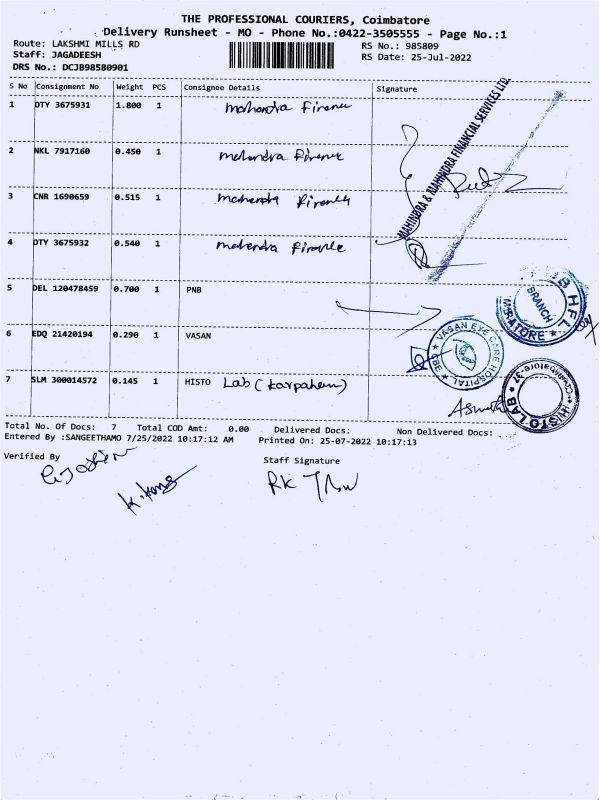 THE PROFESSIONAL COURIERS, Coimbatore
Delivery Runsheet - MO - Phone No.:0422-3505555 - Page No.:1
Route: LAKSHMI MILLS RD RS No.: 985809
Staff: JAGADEESH RS Date: 25-Jul-2022
DRS No.: DCJB98580901
S No Consignment No Weight PCS Consignee Details Signature
1 DTY 3675931 1.800 1 mahendra Finance
2 NKL 7917160 0.450 1 mahendra Finance
3 CNR 1690659 0.515 1 mahendra Finance
4 DTY 3675932 0.540 1 mahendra Finance
MAHINDRA & MAHINDRA FINANCIAL SERVICES LTD.
5 DEL 120478459 0.700 1 PNB
BRANCH
6 EDQ 21420194 0.290 1 VASAN
VASAN EYE CARE HOSPITAL
7 SLM 300014572 0.145 1 HISTO Lab (karpaham)
HISTO LAB Coimbatore-37
Total No. Of Docs: 7 Total COD Amt: 0.00 Delivered Docs: Non Delivered Docs:
Entered By :SANGEETHAMO 7/25/2022 10:17:12 AM Printed On: 25-07-2022 10:17:13
Verified By Staff Signature